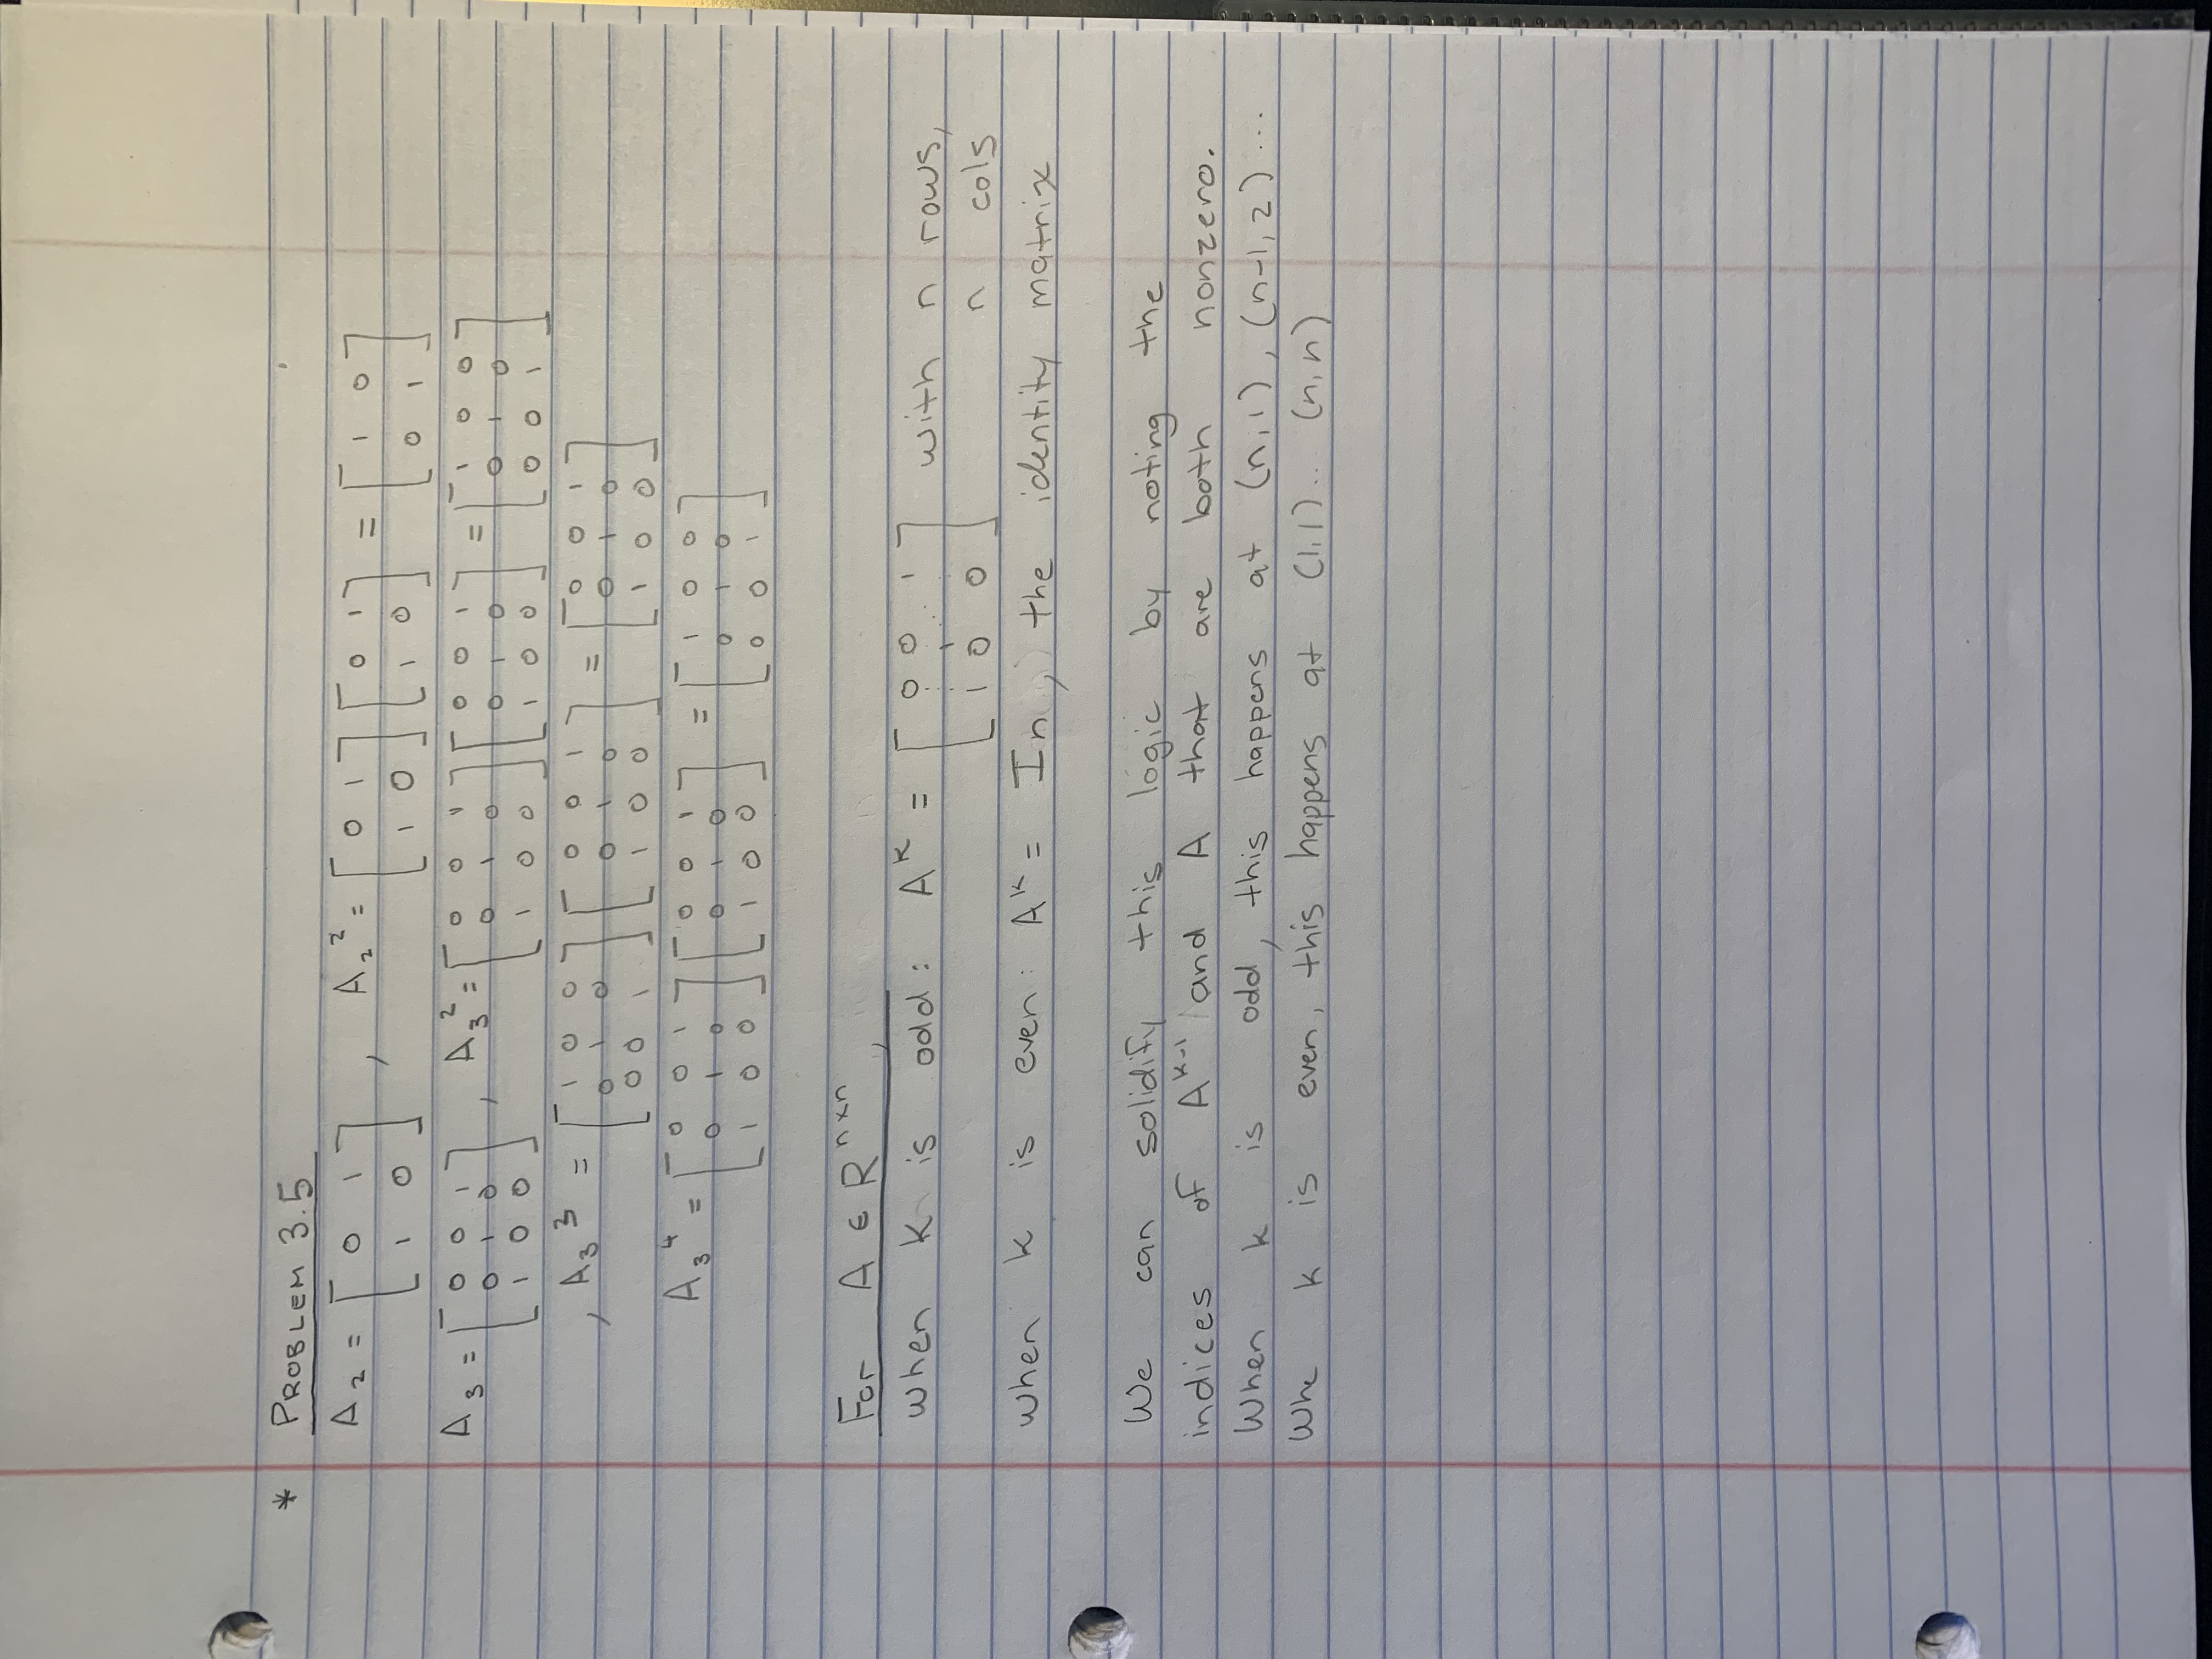 * PROBLEM 3.5
A₂ = [0 1; 1 0], A₂² = [0 1; 1 0] [0 1; 1 0] = [1 0; 0 1]
A₃ = [0 0 1; 0 1 0; 1 0 0], A₃² = [0 0 1; 0 1 0; 1 0 0] [0 0 1; 0 1 0; 1 0 0] = [1 0 0; 0 1 0; 0 0 1]
, A₃³ = [1 0 0; 0 1 0; 0 0 1] [0 0 1; 0 1 0; 1 0 0] = [0 0 1; 0 1 0; 1 0 0]
A₃⁴ = [0 0 1; 0 1 0; 1 0 0] [0 0 1; 0 1 0; 1 0 0] = [1 0 0; 0 1 0; 0 0 1]
For A ∈ R^{n×n},
when K is odd: A^K = [0 0 1; ⋮ 1 ⋰ ⋮; 1 0 0] with n rows,
n cols
when k is even: A^k = In, the identity matrix
We can solidify this logic by noting the
indices of A^{k-1} and A that are both nonzero.
When k is odd, this happens at (n,1), (n-1,2) ...
Whe k is even, this happens at (1,1).. (n,n)